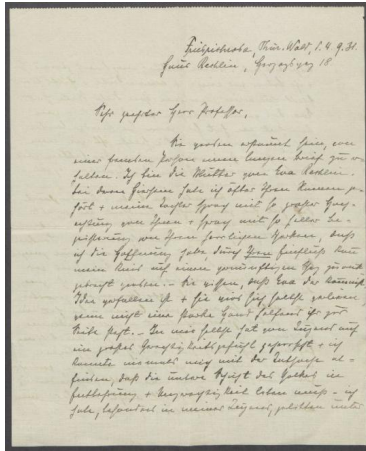 Friedrichroda, Thür. Wald, d. 4. 9. 31.
Haus Rechlin, Herzogsweg 18
Sehr geehrter Herr Professor,
Sie werden erstaunt sein, von
einer fremden Person einen langen Brief zu er-
halten. Ich bin die Mutter von Eva Rechlin.
Bei deren Hiersein habe ich öfter Ihren Namen ge-
hört + meine Tochter sprach mit so großer Hoch-
achtung von Ihnen + sprach mit so heller Be-
geisterung von Ihren herrlichen Werken, daß
ich die Hoffnung habe, durch Ihren Einfluß kann
mein Kind auf einen vernünftigen Weg zurück
gebracht werden. – Sie wissen, daß Eva der kommunist.
Idee verfallen ist + sie wird sich selbst verlieren
wenn nicht eine starke Hand helfend ihr zur
Seite steht. – In mir selbst hat von Jugend auf
ein großes Gerechtigkeitsgefühl geherrscht + ich
konnte niemals mich mit der Tatsache ab-
finden, daß die untere Schicht des Volkes in
Entbehrung + Ungerechtigkeit leben muß – ich
habe, besonders in meiner Jugend, gelitten unter